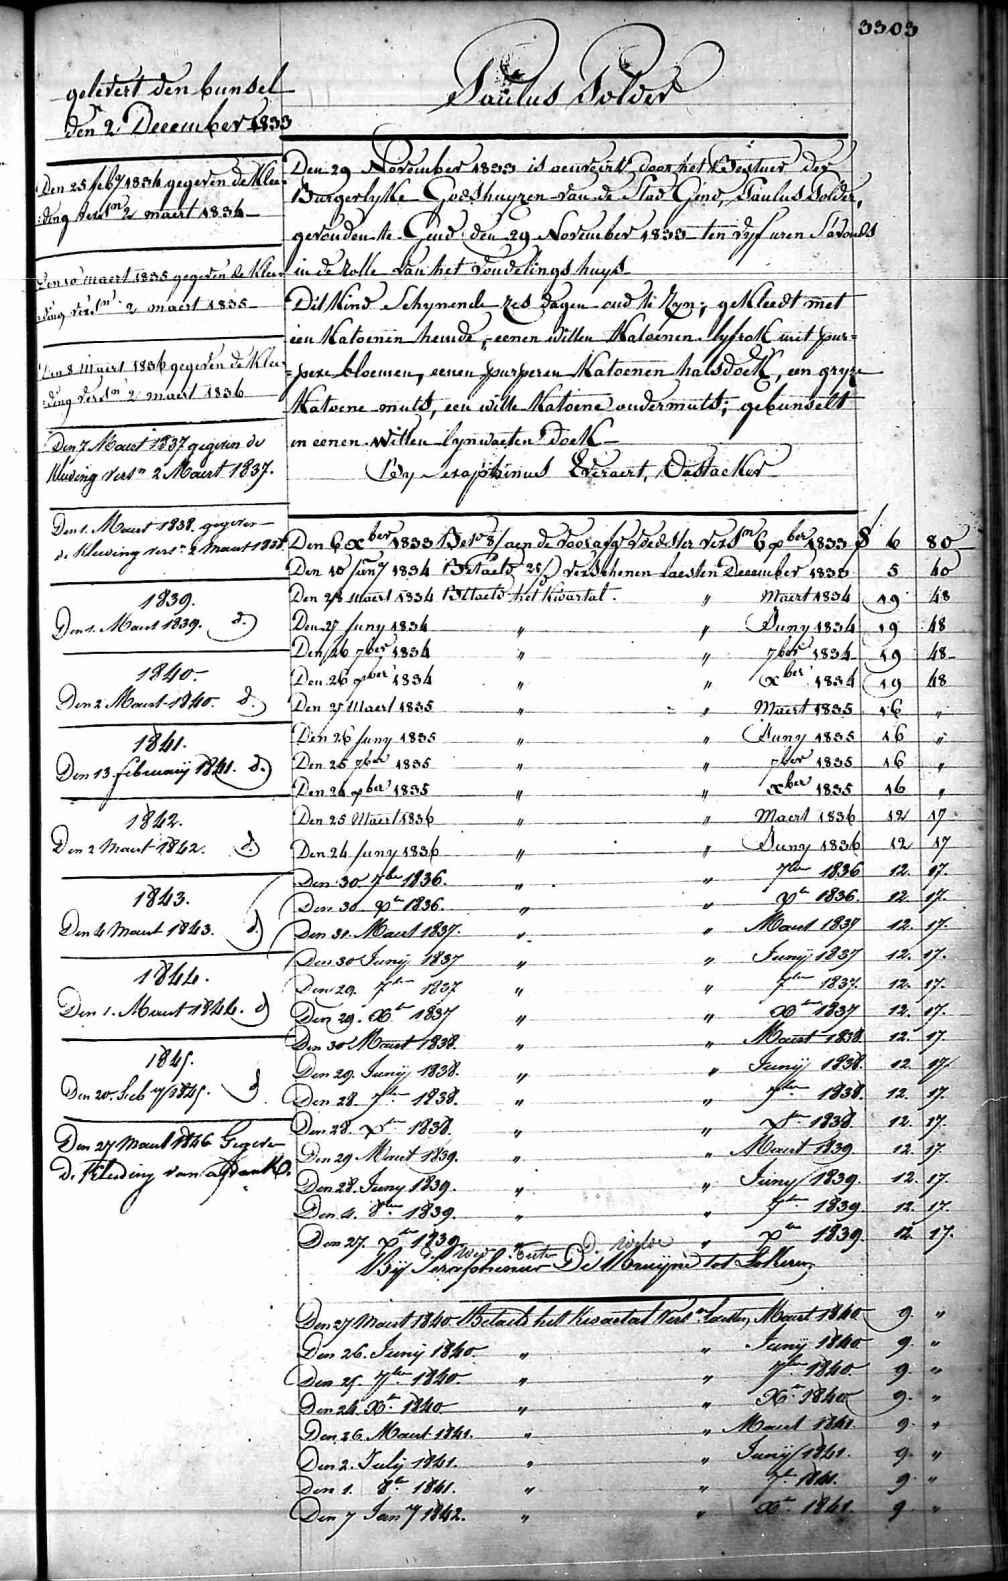 3303
Paulus Polder
gelevert den bunsel
den 2 December 1833
Den 25 feby 1834 gegeven de Klee-
:ding versn 2 maert 1834
Den 10 maert 1835 gegeven de Klee-
:ding versn 2 maert 1835
Den 8 maert 1836 gegeven de Klee-
:ding versn 2 maert 1836
Den 7 Maert 1837 gegeven de
kleeding versn 2 Maert 1837.
Den 1. Maert 1838. gegeven
de Kleeding vers.n 2 Maert 1838
1839.
Den 1. Maert 1839. d.)
1840
Den 2 Maert 1840. d.)
1841.
Den 13 february 1841. d.)
1842.
Den 2 Maert 1842. d.)
1843.
Den 4 Maert 1843. d.)
1844.
Den 1. Maert 1844. d)
1845.
Den 20. Feby 1845. d
Den 27 Maert 1846 Gegeven
de Kleeding van
Den 29 November 1833 is door het Bestuer der
Burgerlyke Godshuyzen van de Stad Gend, Paulus Polder,
gevonden te Gend den 29 November 1833 ten vyf uren S'avonds
in de rolle van het vondelingshuys
Dit Kind Schynende zes dagen oud te Zyn; gekleedt met
een Katoenen hemde, eenen witten Katoenen lyfrok met pur-
=pere bloemen, eenen purperen Katoenen halsdoek, een gryze
Katoene muts, een witte Katoene ondermuts; gebunselt
in eenen witten lynwaeten doek
bey Seraphinus Everaert, Oostacker
Den 6 Xber 1833 aen de voorafge voedster versn 6 xber 1833 6 80
Den 10 Jany 1834 Betaeld verschenen laesten December 1833 5 40
Den 28 Maert 1834 Betaeld het Kwartal. " Maert 1834 19 48
Den 27 Juny 1834 " " Juny 1834 19 48
Den 26 7ber 1834 " " 7ber 1834 19 48
Den 26 xber 1834 " " xber 1834 19 48
Den 27 Maert 1835 " " Maert 1835 16 "
Den 26 Juny 1835 " " Juny 1835 16 "
Den 25 7ber 1835 " " 7ber 1835 16 "
Den 26 xber 1835 " " xber 1835 16 "
Den 25 Maert 1836 " " Maert 1836 12 17
Den 24 Juny 1836 " " Juny 1836 12 17
Den 30 7ber 1836. " " 7ber 1836 12. 17.
Den 30 xr 1836. " " xr 1836. 12. 17.
Den 31 Maert 1837. " " Maert 1837 12. 17.
Den 30 Junij 1837 " " Junij 1837 12. 17.
Den 29. 7ber 1837 " " 7ber 1837. 12. 17.
Den 29. Xr 1837 " " Xr 1837 12. 17.
Den 30 Maert 1838. " " Maert 1838. 12. 17.
Den 29. Junij 1838. " " Junij 1838. 12 17.
Den 28. 7ber 1838. " " 7ber 1838. 12. 17.
Den 28. xr 1838. " " xr 1838. 12. 17.
Den 29 Maert 1839. " " Maert 1839 12. 17
Den 28. Juny 1839. " " Juny 1839. 12. 17.
Den 4. 8ber 1839. " " 7ber 1839 12. 17.
Den 27. xr 1839. " " xr 1839 12. 17.
Bij Seraphinus De Bruijne tot Lokeren
Den 27 Maert 1840 Betaeld het Kwartal versn Laesten Maert 1840 9. "
Den 26. Junij 1840. " " Junij 1840 9. "
Den 25 7ber 1840. " " 7ber 1840. 9. "
Den 24. Xr 1840 " " Xr 1840 9. "
Den 26 Maert 1841. " " Maert 1841. 9. "
Den 2. Julij 1841. " " Junij 1841. 9. "
Den 1. 8r 1841. " " 7r 1841. 9 "
Den 7 Jany 1842. " " Xr 1841 9 "